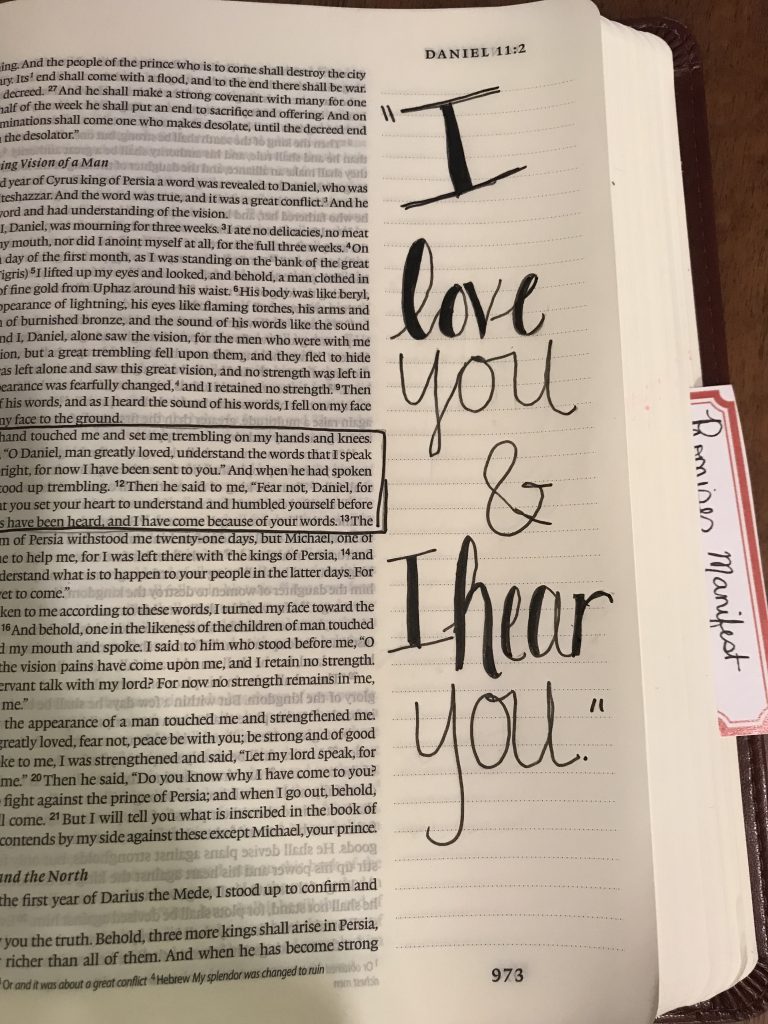 DANIEL 11:2
ing. And the people of the prince who is to come shall destroy the city
ary. Its¹ end shall come with a flood, and to the end there shall be war.
decreed. ²⁷And he shall make a strong covenant with many for one
half of the week he shall put an end to sacrifice and offering. And on
minations shall come one who makes desolate, until the decreed end
the desolator."
ing Vision of a Man
d year of Cyrus king of Persia a word was revealed to Daniel, who was
teshazzar. And the word was true, and it was a great conflict.³ And he
word and had understanding of the vision.
I, Daniel, was mourning for three weeks. ³I ate no delicacies, no meat
my mouth, nor did I anoint myself at all, for the full three weeks. ⁴On
day of the first month, as I was standing on the bank of the great
Tigris) ⁵I lifted up my eyes and looked, and behold, a man clothed in
of fine gold from Uphaz around his waist. ⁶His body was like beryl,
ppearance of lightning, his eyes like flaming torches, his arms and
m of burnished bronze, and the sound of his words like the sound
nd I, Daniel, alone saw the vision, for the men who were with me
ion, but a great trembling fell upon them, and they fled to hide
as left alone and saw this great vision, and no strength was left in
earance was fearfully changed,⁴ and I retained no strength. ⁹Then
f his words, and as I heard the sound of his words, I fell on my face
my face to the ground.
hand touched me and set me trembling on my hands and knees.
"O Daniel, man greatly loved, understand the words that I speak
right, for now I have been sent to you." And when he had spoken
ood up trembling. ¹²Then he said to me, "Fear not, Daniel, for
t you set your heart to understand and humbled yourself before
s have been heard, and I have come because of your words. ¹³The
m of Persia withstood me twenty-one days, but Michael, one of
e to help me, for I was left there with the kings of Persia, ¹⁴and
derstand what is to happen to your people in the latter days. For
yet to come."
ken to me according to these words, I turned my face toward the
¹⁶And behold, one in the likeness of the children of man touched
d my mouth and spoke. I said to him who stood before me, "O
the vision pains have come upon me, and I retain no strength.
ervant talk with my lord? For now no strength remains in me,
me."
the appearance of a man touched me and strengthened me.
greatly loved, fear not, peace be with you; be strong and of good
ke to me, I was strengthened and said, "Let my lord speak, for
me." ²⁰Then he said, "Do you know why I have come to you?
fight against the prince of Persia; and when I go out, behold,
ll come. ²¹But I will tell you what is inscribed in the book of
contends by my side against these except Michael, your prince.
and the North
the first year of Darius the Mede, I stood up to confirm and
you the truth. Behold, three more kings shall arise in Persia,
richer than all of them. And when he has become strong
Or and it was about a great conflict ⁴Hebrew My splendor was changed to ruin
"I
love
you
&
I hear
you."
Promises Manifest
973